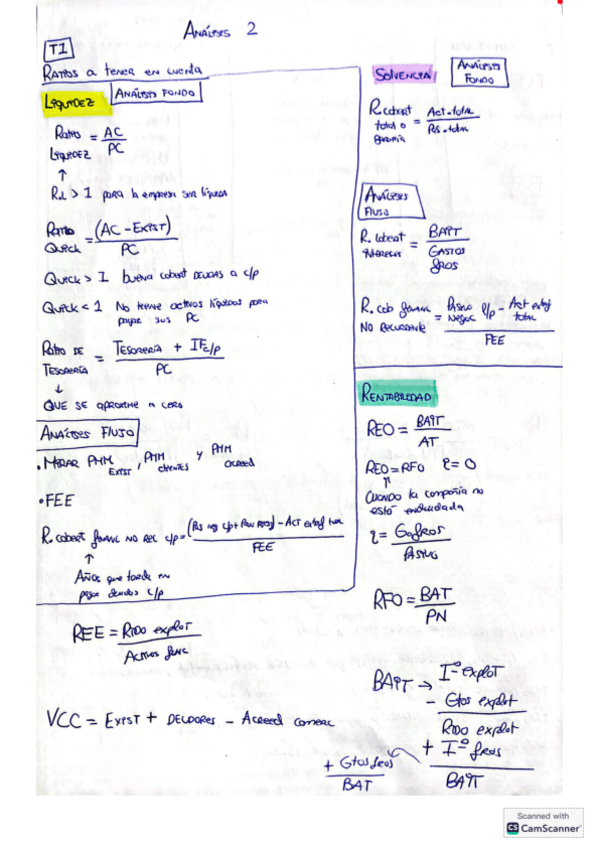 ANÁLISIS 2
T1
RATIOS a TENER EN CUENTA
LIQUIDEZ
ANÁLISIS FONDO
RATIO LIQUIDEZ = AC / PC
↑
R.L > 1 para la empresa ser líquida
RATIO QUICK = (AC - EXIST) / PC
QUICK > 1 buena cobert DEUDAS a c/p
QUICK < 1 No tiene activos líquidos para
pagar sus PC
RATIO DE TESORERÍA = TESORERÍA + IF c/p / PC
↓
QUE SE aproxime a cero
ANÁLISIS FLUJO
• MIRAR PMM EXIST, PMM CLIENTES Y PMM ACREED
• FEE
R. cobert NO REC c/p = - Act extfuj / FEE
↑
Años que tarda en
pagar deudas c/p
REE = RTDO explot / ACTIVOS func
VCC = EXIST + DEUDORES - Acreed comerc
SOLVENCIA
ANÁLISIS FONDO
R. cobert total o garantía = Act. total / Ps. total
ANÁLISIS FLUJO
R. cobert intereses = BAIT / GASTOS fros
R. cob NO RECURRENTE = PASIVO c/p - Act total / FEE
RENTABILIDAD
REO = BAIT / AT
REO = RFO r = 0
↑
CUANDO la compañía no
está endeudada
r = G fros / PASIVO
RFO = BAT / PN
BAIT → I^o explot
- Gtos explot
RTDO explot
+ I^o fros
BAIT
+ Gtos fros
BAT
Scanned with
CS CamScanner